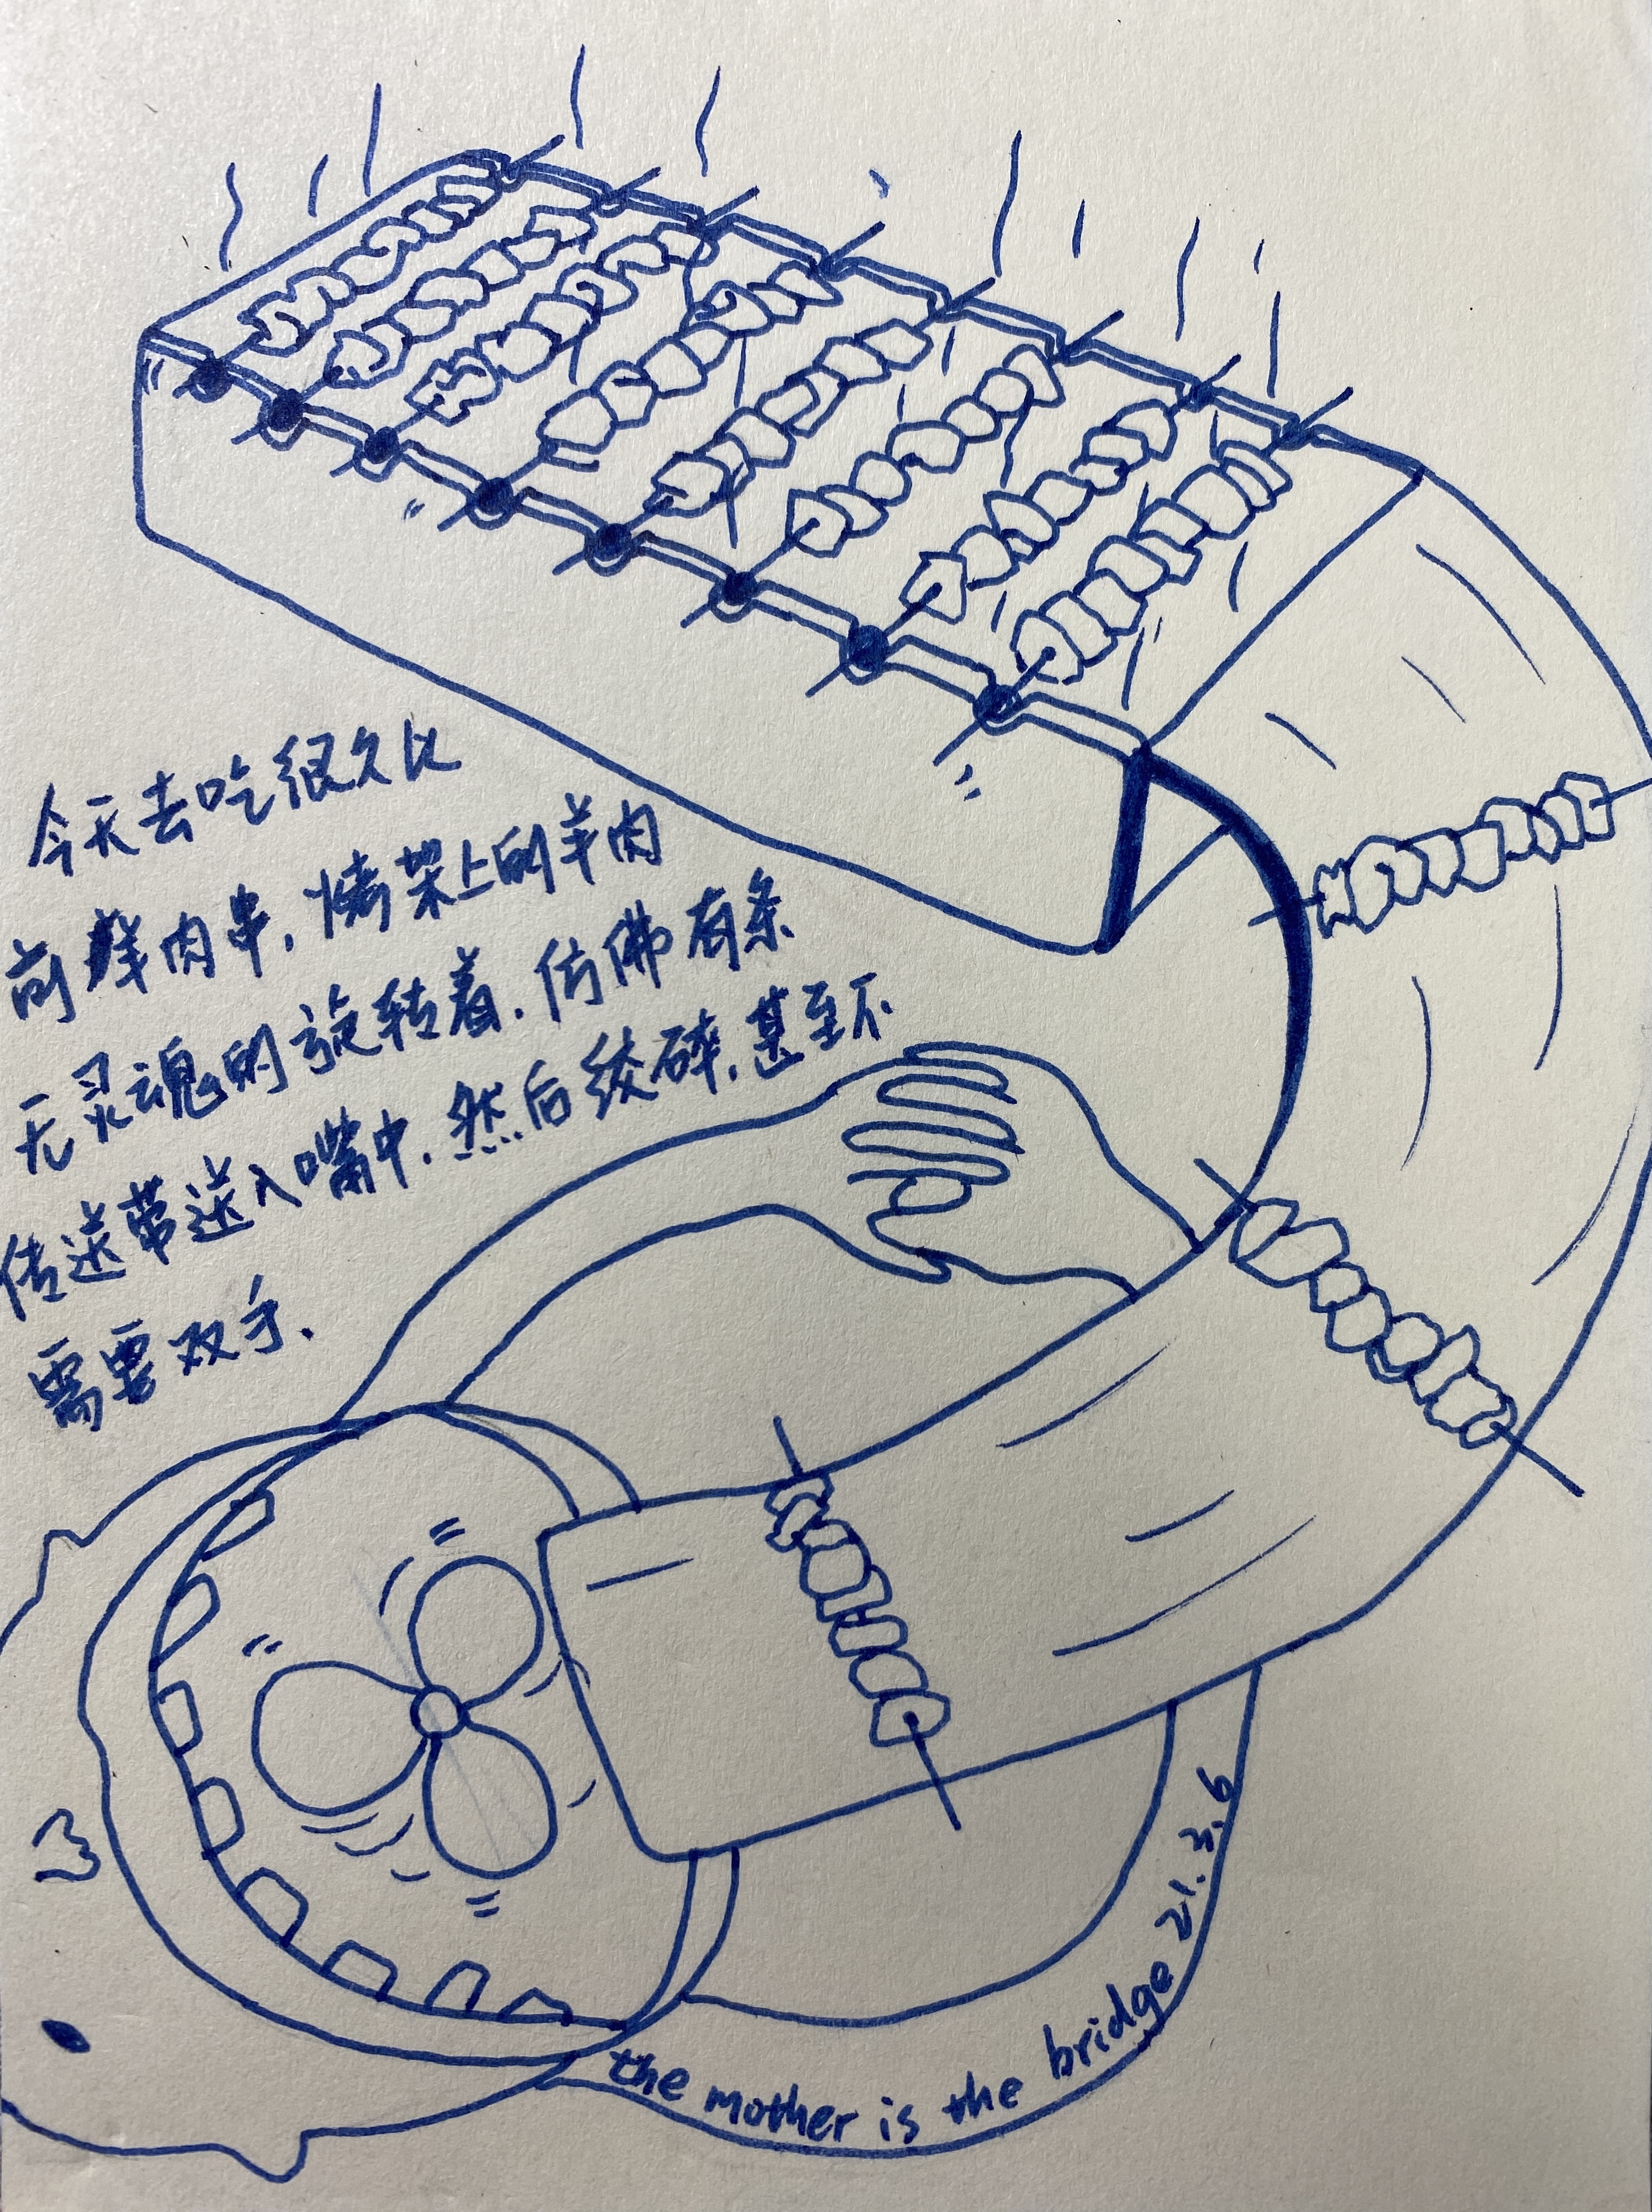 今天去吃很久比
前鲜肉串.烤架上的羊肉
无灵魂的旋转着.仿佛有条
传送带送入嘴中.然后绞碎.甚至不
需要双手.
the mother is the bridge 21.3.6